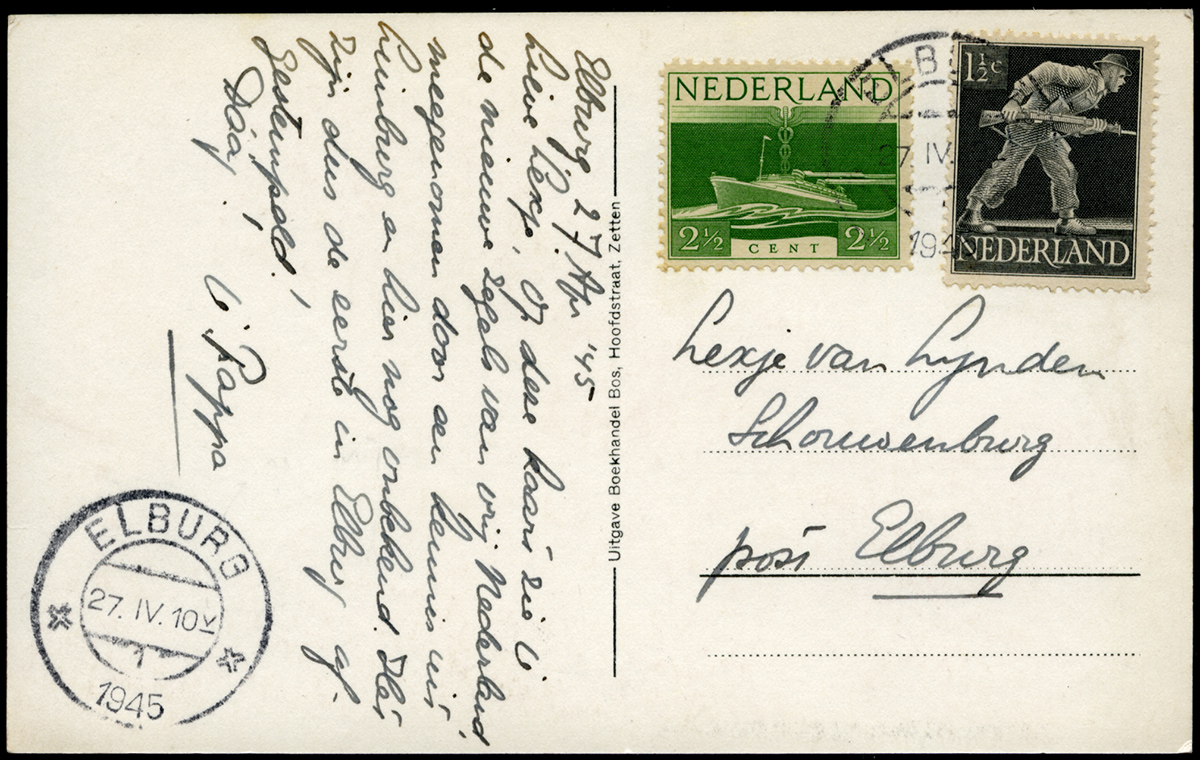 Elburg 27 Apr '45
Lieve Lexje, Op deze kaart zie U
de nieuwe zegels van vrij Nederland,
meegenomen door een kennis uit
Limburg en hier nog onbekend. Het
zijn dus de eerste in Elburg af-
gestempeld!
Dáá!
Pappa
Uitgave Boekhandel Bos, Hoofdstraat, Zetten
NEDERLAND
2½ CENT 2½
1½c
NEDERLAND
ELB
27. IV.
194
Lexje van Lynden
Schouwenburg
post Elburg
ELBURG
27. IV. 10 V
1
1945